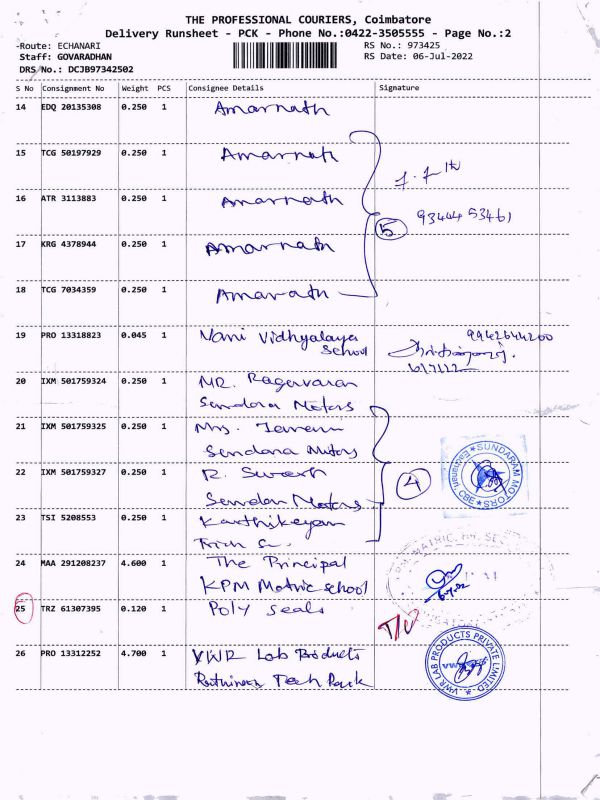 THE PROFESSIONAL COURIERS, Coimbatore
Delivery Runsheet - PCK - Phone No.:0422-3505555 - Page No.:2
Route: ECHANARI RS No.: 973425
Staff: GOVARADHAN RS Date: 06-Jul-2022
DRS No.: DCJB97342502
S No Consignment No Weight PCS Consignee Details Signature
14 EDQ 20135308 0.250 1 Amarnath
15 TCG 50197929 0.250 1 Amarnath
16 ATR 3113883 0.250 1 Amarnath
5 93444 53461
17 KRG 4378944 0.250 1 Amarnath
18 TCG 7034359 0.250 1 Amarnath
19 PRO 13318823 0.045 1 Mani Vidhyalaya 9942644200
School
6/7/22
20 IXM 501759324 0.250 1 MR. Ragavaran
Sundara Motors
21 IXM 501759325 0.250 1 Mrs.
Sundara Motors
SUNDARAM MOTORS
Eachanari, CBE
22 IXM 501759327 0.250 1 R Suresh 4
Sundar Motors
23 TSI 5208553 0.250 1 Karthikeyan
24 MAA 291208237 4.600 1 The Principal
KPM Matric school
25 TRZ 61307395 0.120 1 Poly seals
26 PRO 13312252 4.700 1 VWR Lab Products
Rathinam Tech Park
VWR LAB PRODUCTS PRIVATE LIMITED
vwr